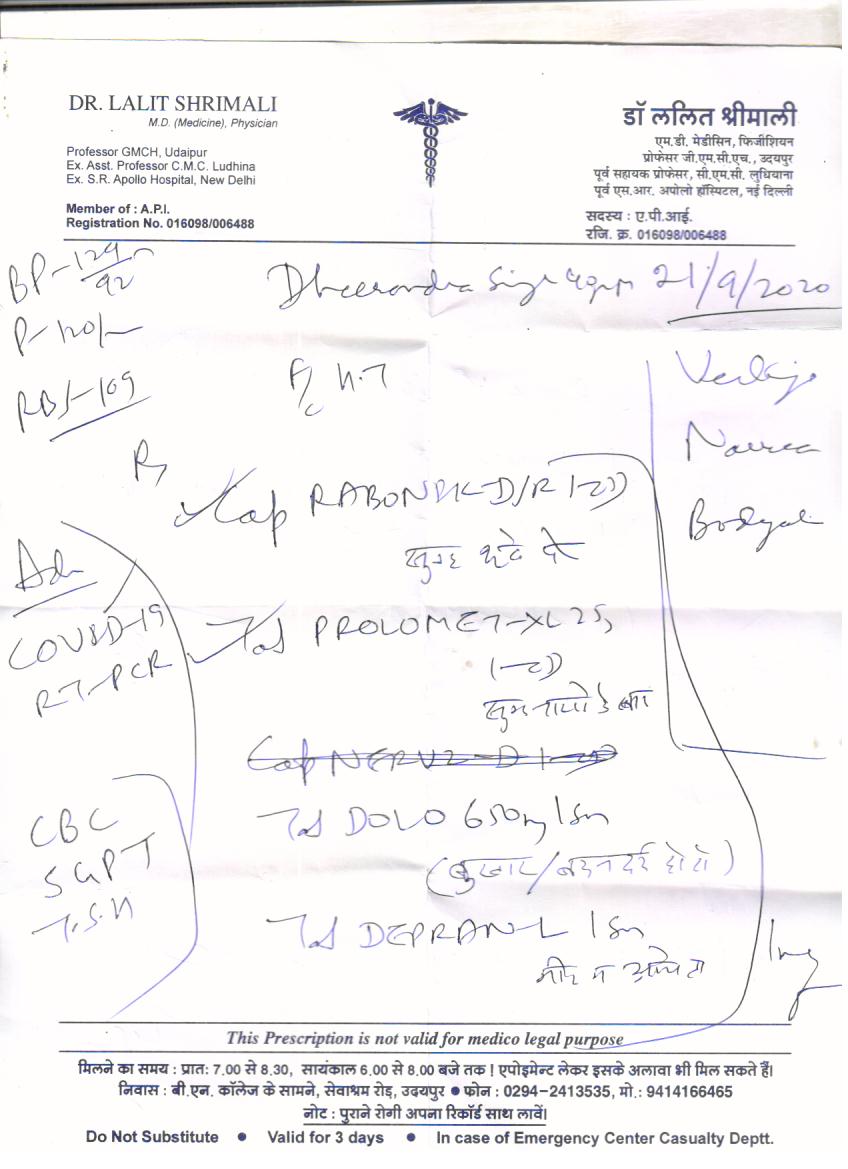 DR. LALIT SHRIMALI
M.D. (Medicine), Physician
Professor GMCH, Udaipur
Ex. Asst. Professor C.M.C. Ludhina
Ex. S.R. Apollo Hospital, New Delhi
Member of : A.P.I.
Registration No. 016098/006488
डॉ ललित श्रीमाली
एम.डी. मेडीसिन, फिजीशियन
प्रोफेसर जी.एम.सी.एच., उदयपुर
पूर्व सहायक प्रोफेसर, सी.एम.सी. लुधियाना
पूर्व एस.आर. अपोलो हॉस्पिटल, नई दिल्ली
सदस्य : ए.पी.आई.
रजि. क्र. 016098/006488
BP-129/92
Dheerendra 21/9/2020
P-120/-
RBS-109
Nausea
Cap RABONIK-D/R
सुबह भूखे पेट
Adv
COVID-19
RT-PCR
Tab PROLOMET-XL 25
Cap NERVZ-D
CBC
SGPT
T.S.H
Tab DOLO 650mg
(बुखार/बदन दर्द हो तो)
Tab DEPRAN-L
This Prescription is not valid for medico legal purpose
मिलने का समय : प्रातः 7.00 से 8.30, सायंकाल 6.00 से 8.00 बजे तक ! एपोइमेन्ट लेकर इसके अलावा भी मिल सकते हैं।
निवास : बी.एन. कॉलेज के सामने, सेवाश्रम रोड़, उदयपुर ● फोन : 0294-2413535, मो.: 9414166465
नोट : पुराने रोगी अपना रिकॉर्ड साथ लावें।
Do Not Substitute ● Valid for 3 days ● In case of Emergency Center Casualty Deptt.